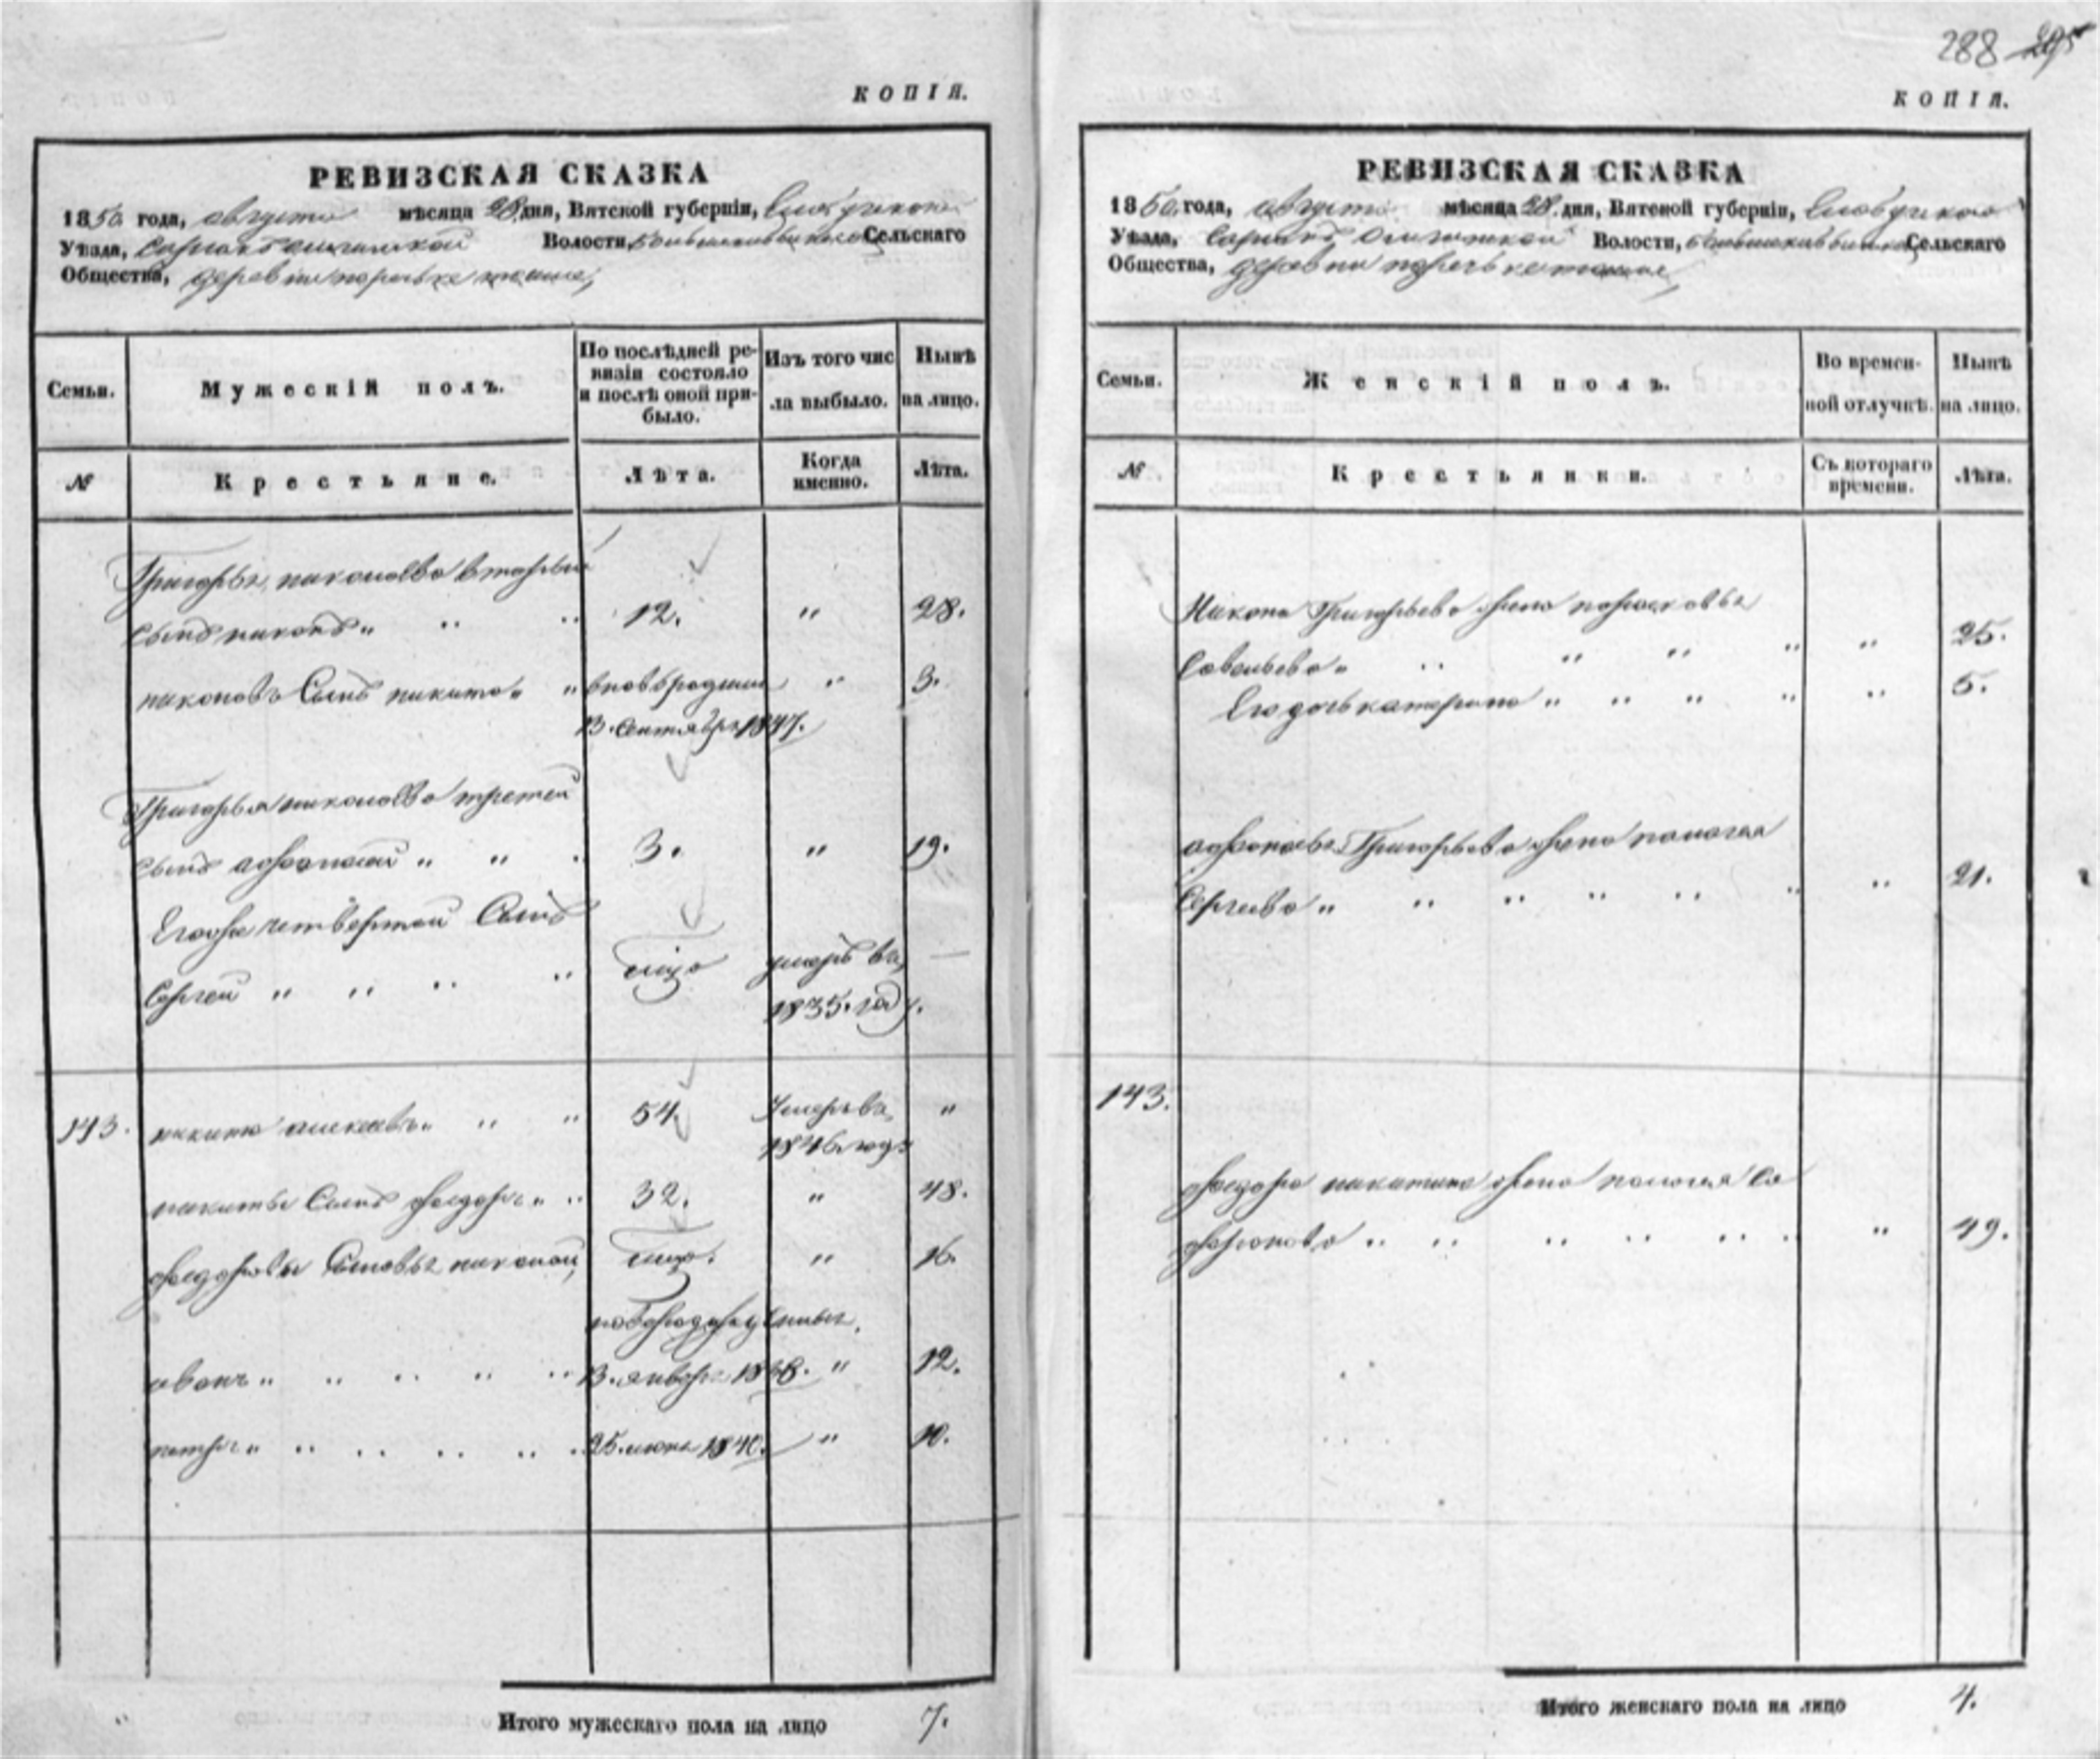 КОПІЯ.
РЕВИЗСКАЯ СКАЗКА
1850 года, августа мѣсяца 28 дня, Вятской губерніи,
Уѣзда, Волости, Сельскаго
Общества, деревни
Семьи.
Мужескій полъ.
По послѣдней ре-
визіи состояло
и послѣ оной при-
было.
Изъ того чис
ла выбыло.
Нынѣ
на лицо.
№
Крестьяне.
Лѣта.
Когда
именно.
Лѣта.
Григорья николаева вторый
сынъ никонъ " " " 12. " 28.
никоновъ Сынъ никита " " вновьродился " 3.
13. Сентября 1847.
Григорья николаева третей
сынъ афонасей " " " 3. " 19.
Егора четвертой Сынъ
Сергей " " " " умеръ въ —
1835. году.
143. никита алексеевъ " " " 54. Умеръ въ "
1846. году
никиты Сынъ федоръ " " 32. " 48.
федоровы Сыновья николай " 16.
иванъ " " " " " 13. января 1838. " 12.
петръ " " " " " " 25. июня 1840. " 10.
Итого мужескаго пола на лицо 7.
288 295
КОПІЯ.
РЕВИЗСКАЯ СКАЗКА
1850 года, августа мѣсяца 28 дня, Вятской губерніи,
Уѣзда, Волости, Сельскаго
Общества, деревни
Семьи.
Женскій полъ.
Во времен-
ной отлучкѣ.
Нынѣ
на лицо.
№
Крестьянки.
Съ котораго
времени.
Лѣта.
Никона Григорьева жена парасковья
Савельева " " " " " " 25.
Его дочь катерина " " " " " 5.
афонасья Григорьева жена палагея
Сергеева " " " " " " " 21.
143.
федора никитина жена палагея Са
фронова " " " " " " " 49.
Итого женскаго пола на лицо 4.